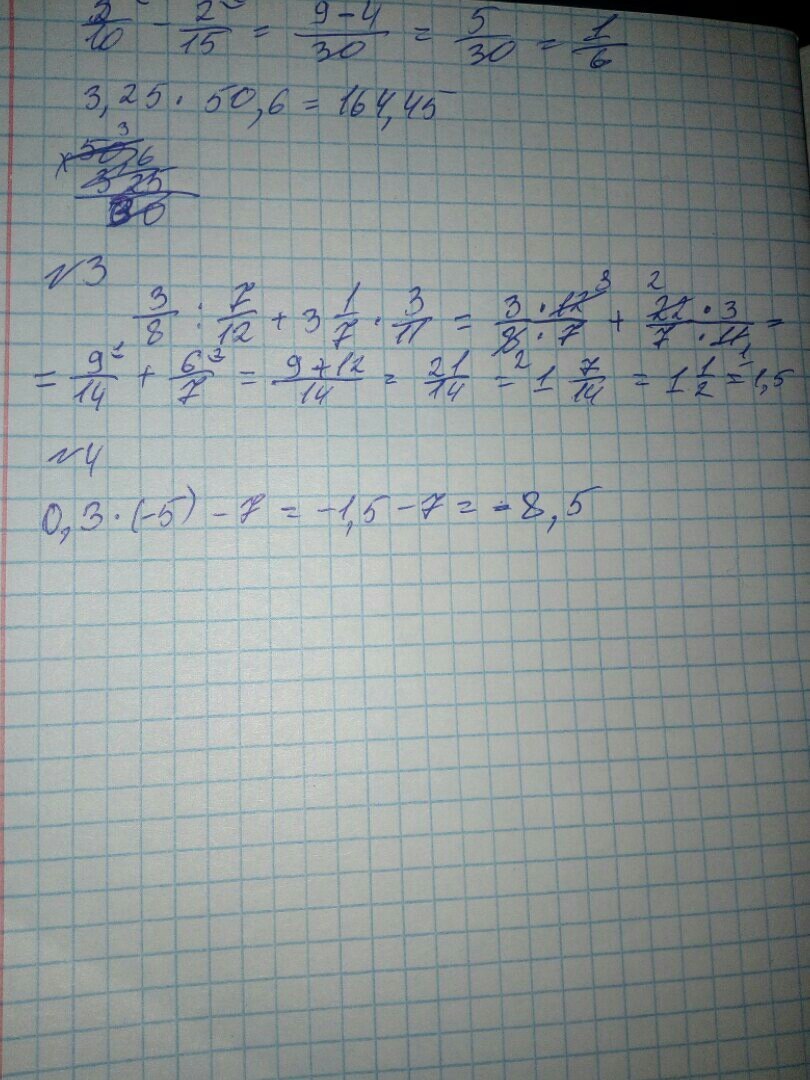 3/10 - 2/15 = 9-4/30 = 5/30 = 1/6
3,25 · 50,6 = 164,45
× 50,6
3,25
30
№3
3/8 : 7/12 + 3 1/7 · 3/11 = 3 · 12/8 · 7 + 22 · 3/7 · 11 =
= 9/14 + 6/7 = 9+12/14 = 21/14 = 1 7/14 = 1 1/2 = 1,5
№4
0,3 · (-5) - 7 = -1,5 - 7 = -8,5